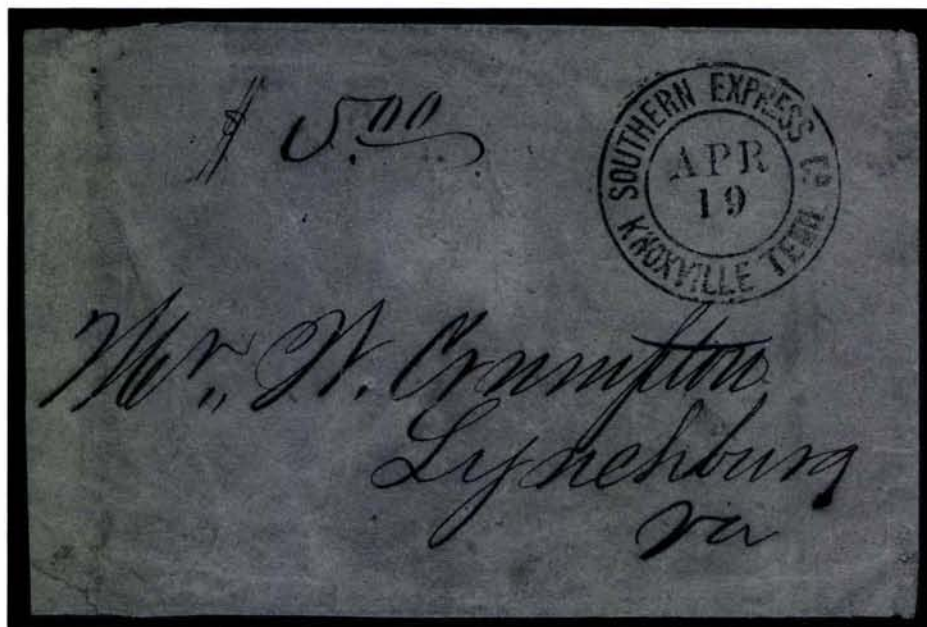 $ 5.00
SOUTHERN EXPRESS Co
APR
19
KNOXVILLE TENN
Mr. W. Crumpton
Lynchburg
Va